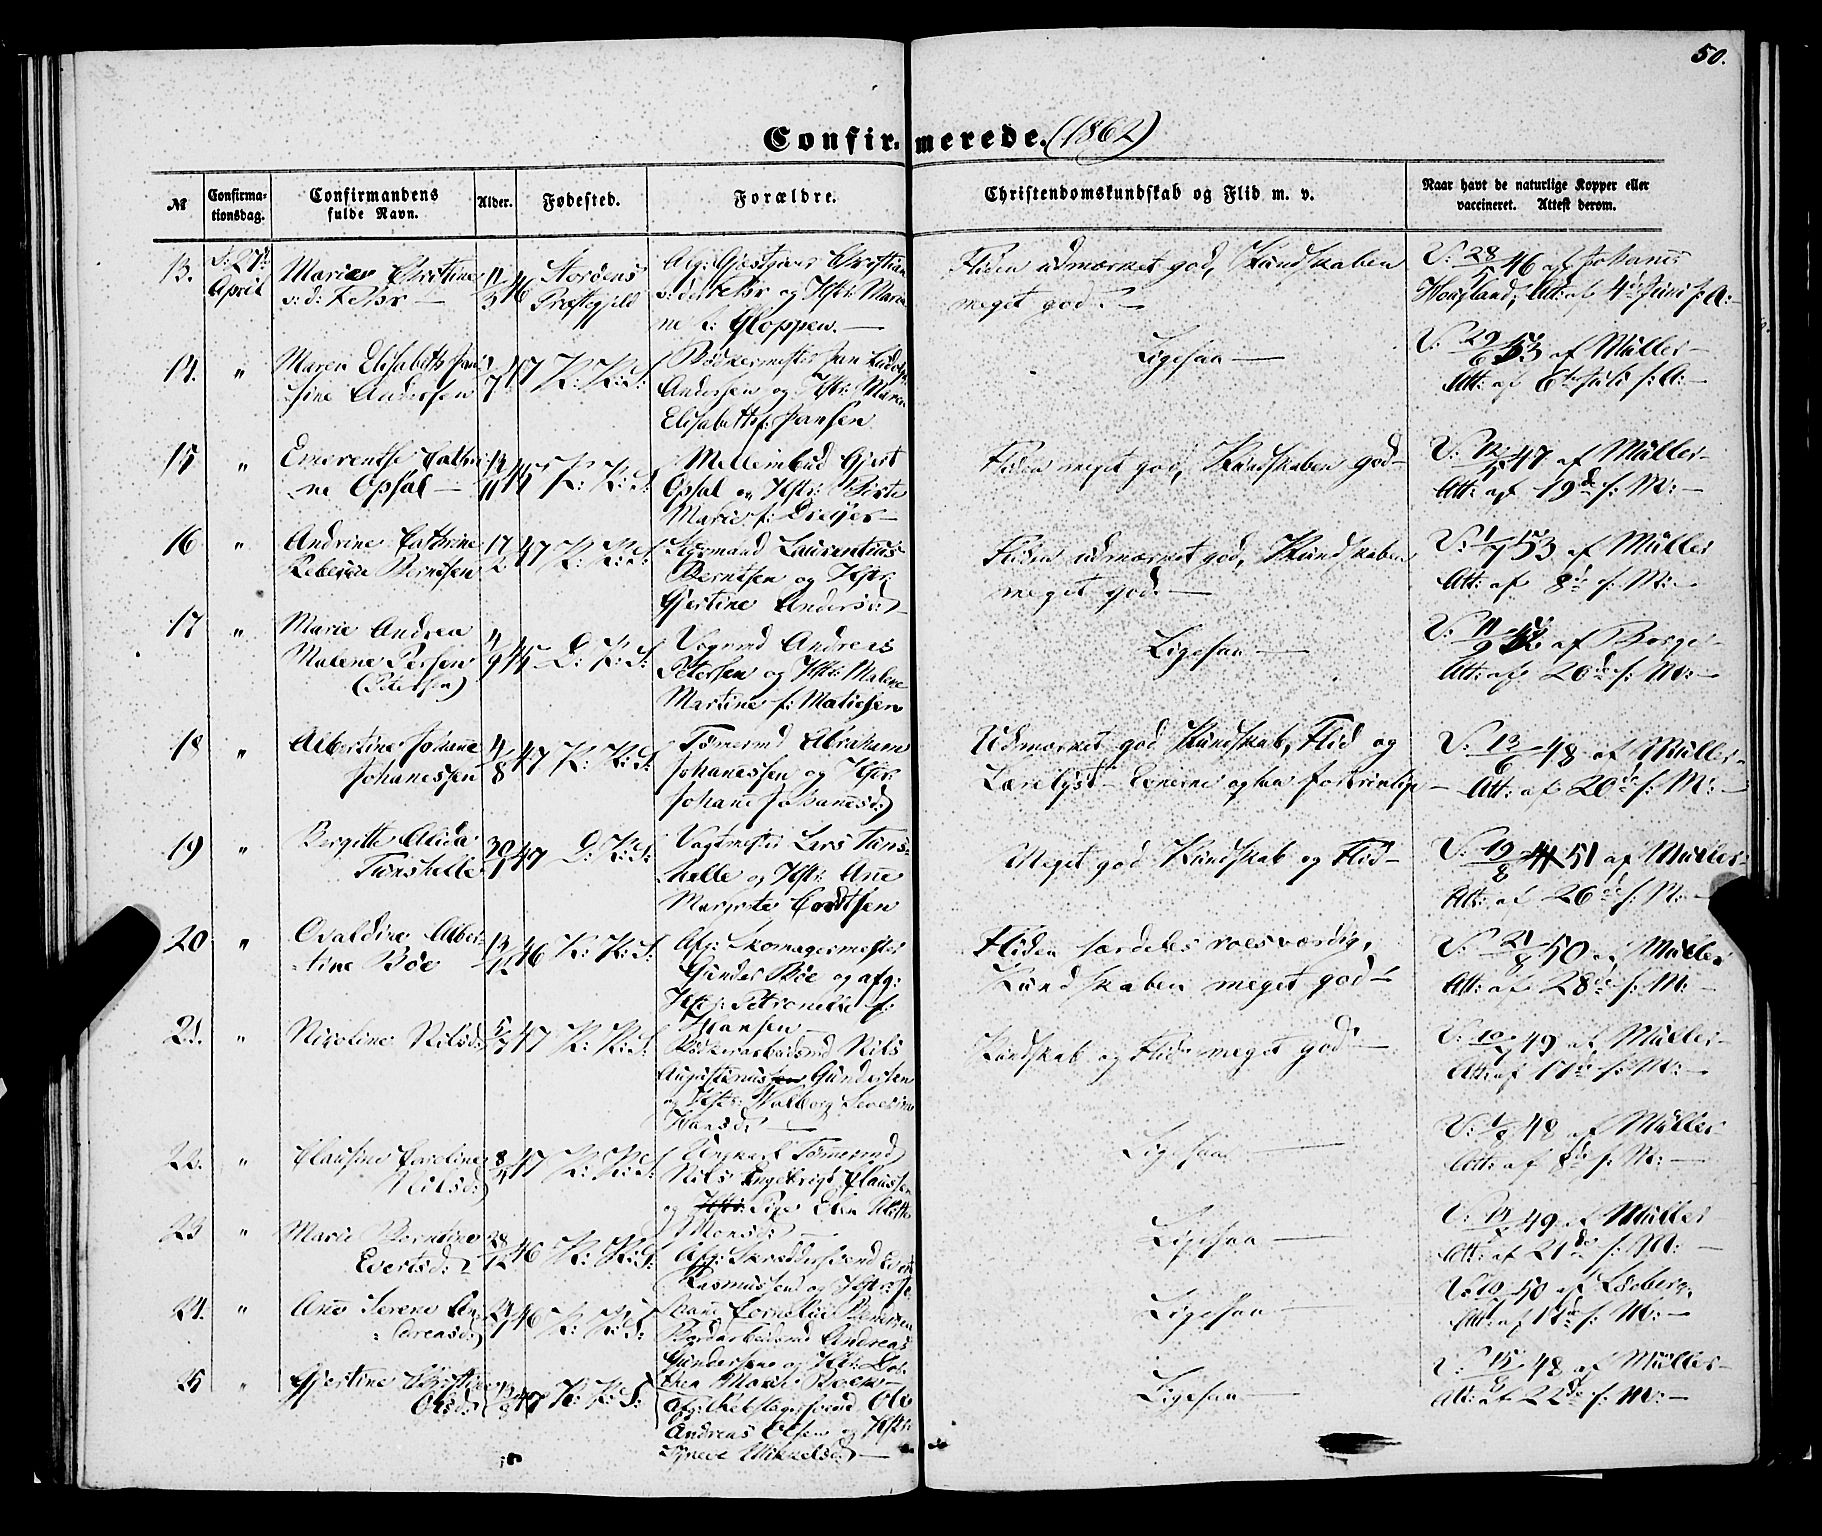 50.
Confirmerede. (1862)
№ Confirma-tionsdag. Confirmandens fulde Navn. Alder. Fødested. Forældre. Christendomskundskab og Flid m. v. Naar havt de naturlige Kopper eller vaccineret. Attest derom.
13. d: 27d April
Marie Christine
v: d: Lehr —
46 Stordens
Præstegjeld
Afg: Gjestgiver Christian
v: der Lehr og Hstr: Mari
ne f: Gloppen. —
Fliden udmærket god, Kundskaben
meget god. —
V: 28/5 46 af Johanes
Hougland, Att: af 4de Juni s: A: —
14. "
Maren Elisabeth Jan
sine Andersen
47 K: K: S:
Bødkermester Jan Ludolp
Andersen og Hstr: Maren
Elisabeth f: Jansen
Ligesaa —
V: 29/6 53 af Müller —
Att: af 6te Juli s: A: —
15 "
Emerentse Cathri
ne Opsal —
K: K: S:
Mellembud Gjert
Opsal og Hstr: Birte
Marie f: Dreyer —
Fliden meget god, Kundskaben god —
V: 12/5 47 af Müller —
Att: af 19de s: M: —
16 "
Andrine Cathrine
Rebekke Berntsen
17/2 47 K: K: S:
Sjømand Laurentius
Berntsen og Hstr
Gjertine Andersd:
Fliden udmærket god, Kundskaben
meget god. —
V: 1/7 53 af Müller
Att: af 8de s: M: —
17 "
Marie Andrea
Malene Persen
(Petersen)
D: K: S:
Vognmd Andreas
Petersen og Hstr: Malene
Martine f: Mathiesen
Ligesaa —
V: 11/9 af Borge
Att: af 20de s: M: —
18 "
Albertine Johanne
Johanessen
4/8 47 K: K: S:
Tømermd Abraham
Johanessen og Hstr
Johane Johanesd:
Udmærket god Kundskab, Flid og
Lærelyst — Evnerne ogsaa fortrinlige —
V: 13/6 48 af Müller —
Att: af 20de s: M: —
19 "
Bergitte Alida
Tønshelle
30/1 47 D: K: S:
Vagtmester Lars Tøns-
helle og Hstr: Ane
Margrete Cordtsen
Meget god Kundskab og Flid —
V: 19/8 51 af Müller —
Att: af 26de s: M: —
20 "
Osaldine Alber-
tine Böe
13/12 46 K: K: S:
Afg: Skomagermester
Gunder Böe og afg:
Hstr: Petronelle f:
Hansen
Fliden særdeles roesværdig,
Kundskaben meget god —
V: 21/8 50 af Müller
Att: af 28de s: M: —
21. "
Nicoline Nilsd:
5/7 47 K: K: S:
Bødkerarbeidsmd Nils
Augustinussen Gundersen
og Hstr: Walborg Severine
Hansd: —
Kundskab og Flid meget god —
V: 10/7 49 af Müller —
Att: af 17de s: M: —
22. "
Clausine Caroline
Nilsd:
47 K: K: S:
Ungkarl Tømermd
Nils Engebrigt Claussen
og Hstr: Pige Elen
Monsd: —
Ligesaa —
V: 1/8 48 af Müller —
Att: af 8de s: M: —
23 "
Marie Berntine
Evertsd: —
28/12 46 K: K: S:
Afg: Skræddersvend Evert
Rasmussen og Hstr: Jo
hane Cornelia Berntsen
Ligesaa —
V: 14/ 49 af Müller —
Att: af 21de s: M: —
24. "
Ane Serene An-
dreasd:
24/7 46 K: K: S:
Bordarbeidsmd Andreas
Gundersen og Hstr: Do
thea Marie
Ligesaa —
V: 10/ 50 af Lobery,
Att: af 17de s: M: —
25 "
Gjertine
Olsd:
47 K: K: S:
Afg: Rebslagersvend Ole
Andreas Olsen og Hstr
Synneve Mikkelsd: —
Ligesaa —
V: 15/8 48 af Müller —
Att: af 22de s: M: —